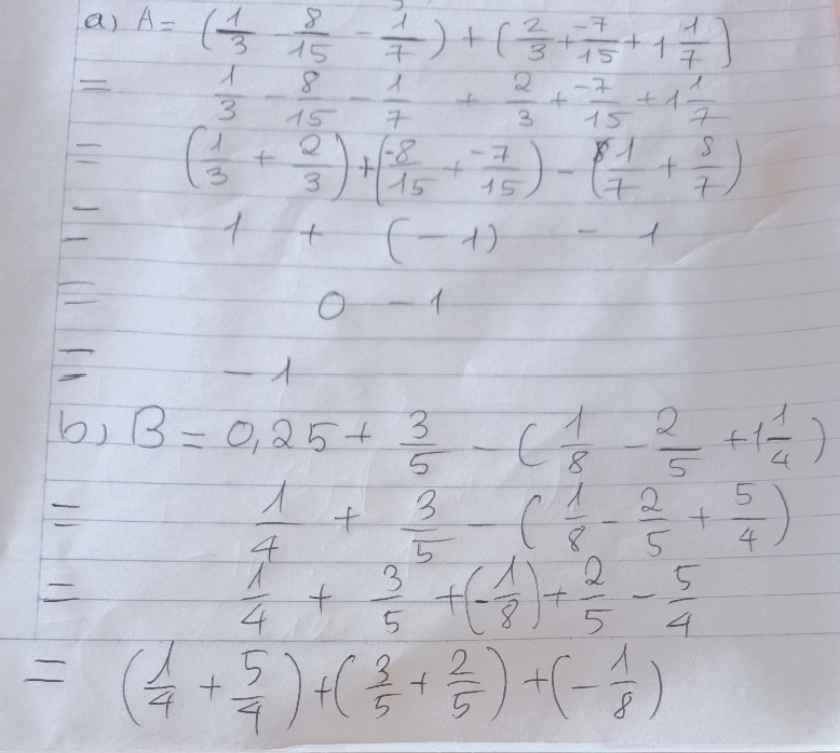 a) A = (1/3 - 8/15 - 1/7) + (2/3 + -7/15 + 1 1/7)
= 1/3 - 8/15 - 1/7 + 2/3 + -7/15 + 1 1/7
= (1/3 + 2/3) + (-8/15 + -7/15) - (1/7 + 8/7)
= 1 + (-1) - 1
= 0 - 1
= -1
b) B = 0,25 + 3/5 - (1/8 - 2/5 + 1 1/4)
= 1/4 + 3/5 - (1/8 - 2/5 + 5/4)
= 1/4 + 3/5 + (-1/8) + 2/5 - 5/4
= (1/4 + 5/4) + (3/5 + 2/5) + (-1/8)